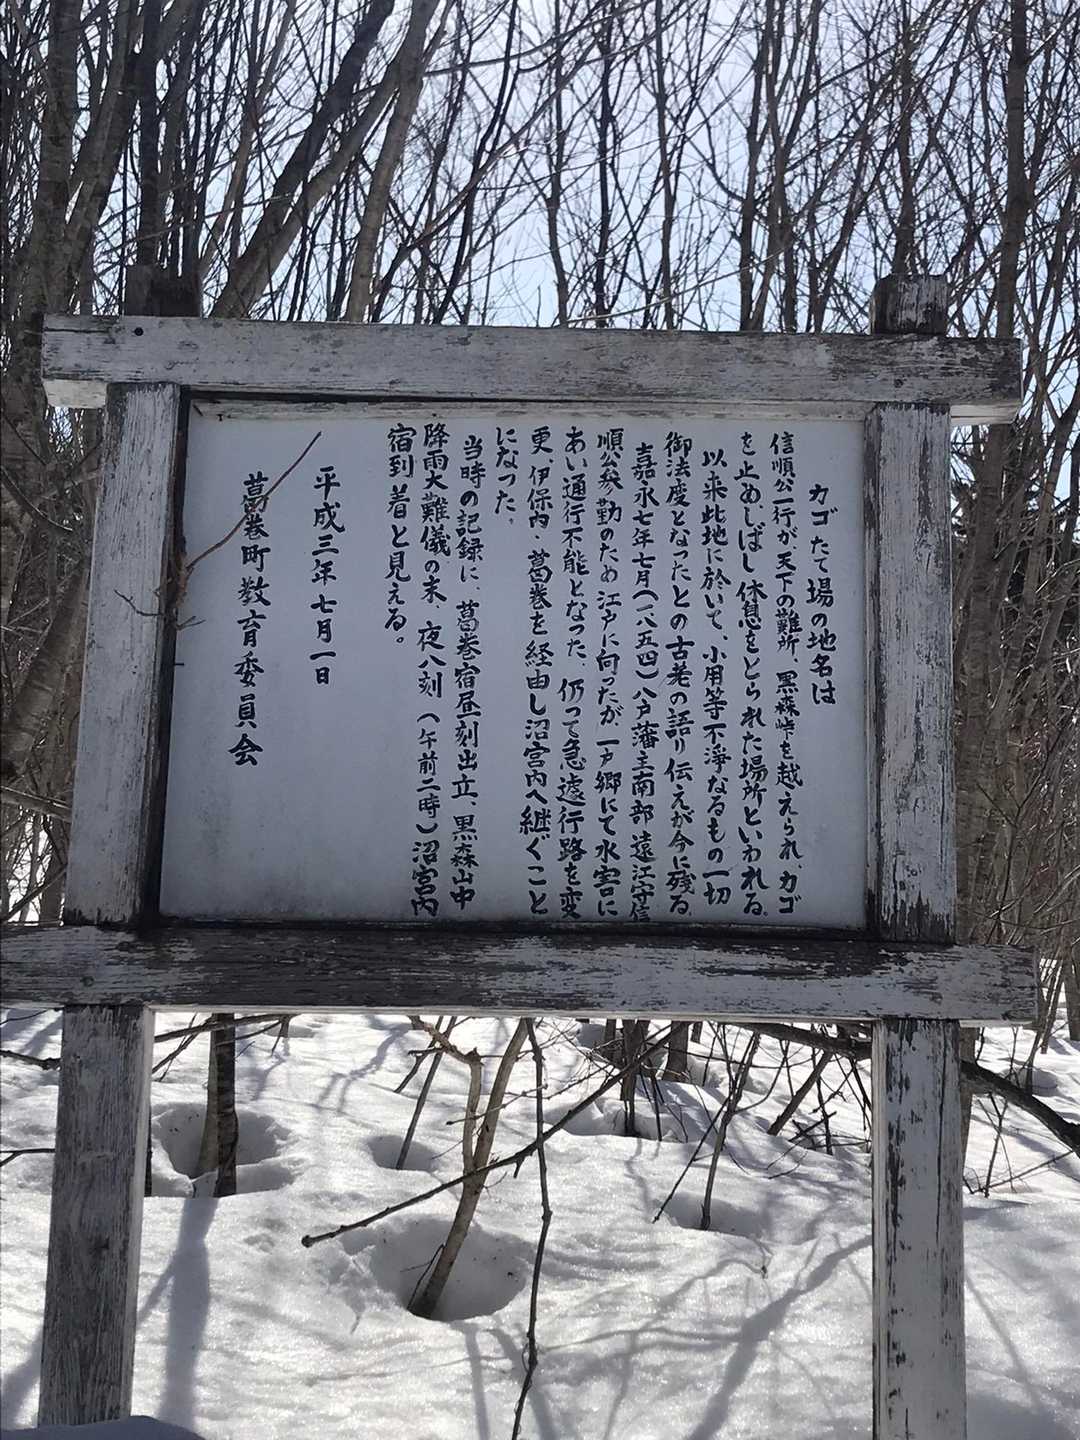 カゴたて場の地名は
信順公一行が天下の難所、黒森峠を越えられ、カゴ
を止め、しばし休息をとられた場所といわれる。
以来此地に於いて、小用等不淨なるもの一切
御法度となったとの古老の語り伝えが今に残る。
嘉永七年七月(一八五四)八戸藩主南部遠江守信
順公参勤のため江戸に向ったが、一戸郷にて水害に
あい通行不能となった、仍って急遽行路を変
更、伊保内・葛巻を経由し沼宮内へ継ぐこと
になった。
当時の記録に、葛巻宿昼刻出立、黒森山中
降雨大難儀の末、夜八刻(午前二時)沼宮内
宿到着と見える。
平成三年七月一日
葛巻町教育委員会